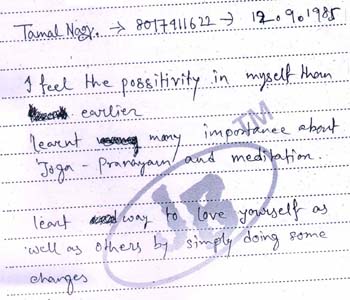 Tamal Nag. → 8017411622 → 12.09.1985
I feel the possitivity in myself than
earlier
learnt many importance about
Yoga - Pranayam and meditation.
leant way to love yourself as
well as others by simply doing some
changes
JB TM